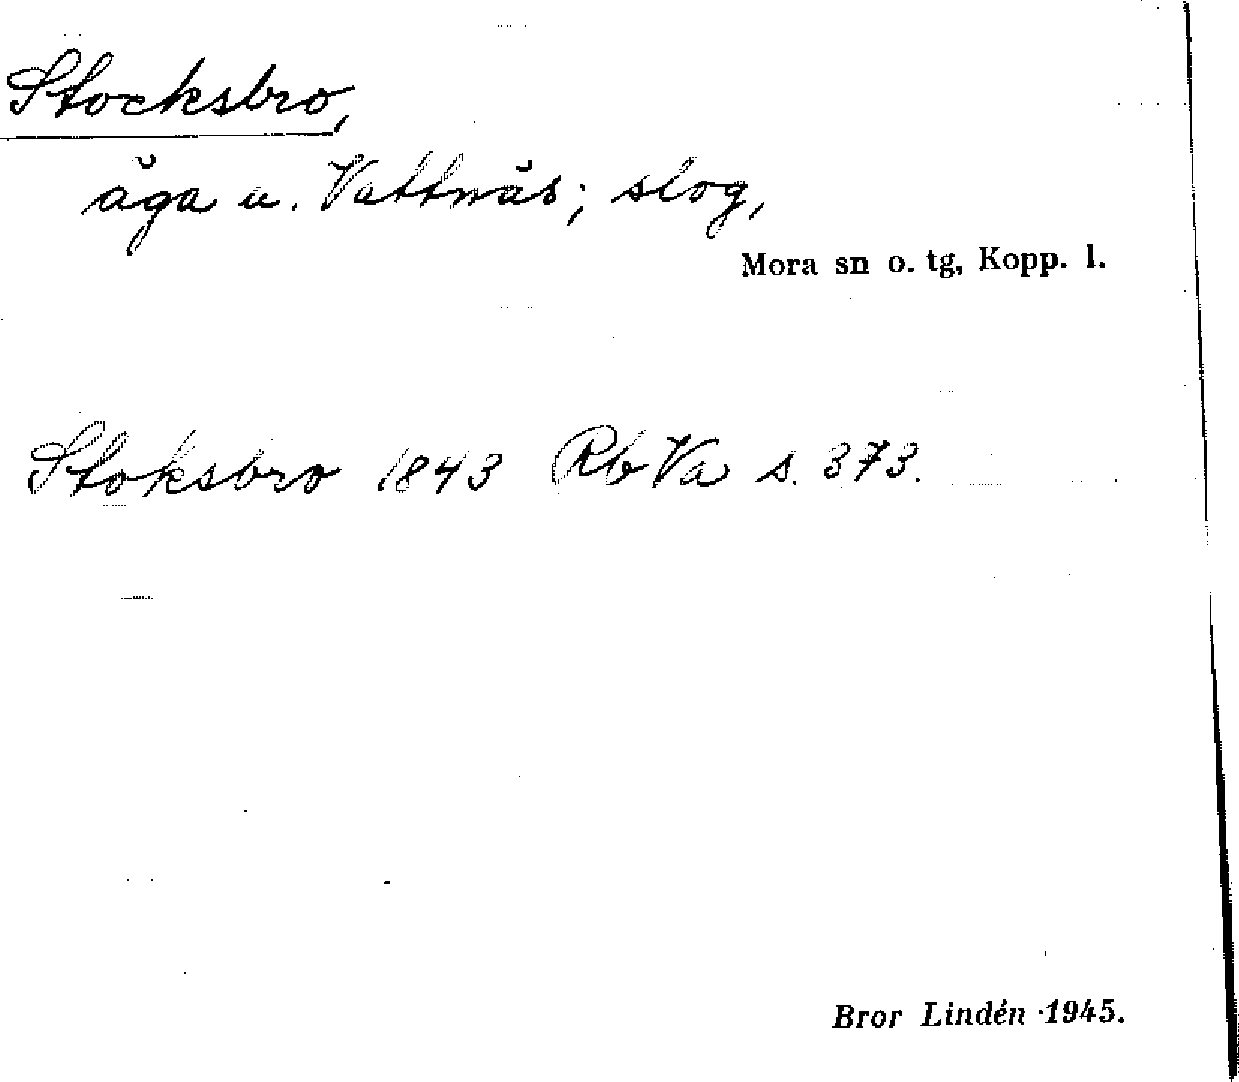 Stocksbro,
äga u. Vattnäs; slog,
Mora sn o. tg, Kopp. l.
Stoksbro 1843 Rb Va s. 373.
Bror Lindén 1945.